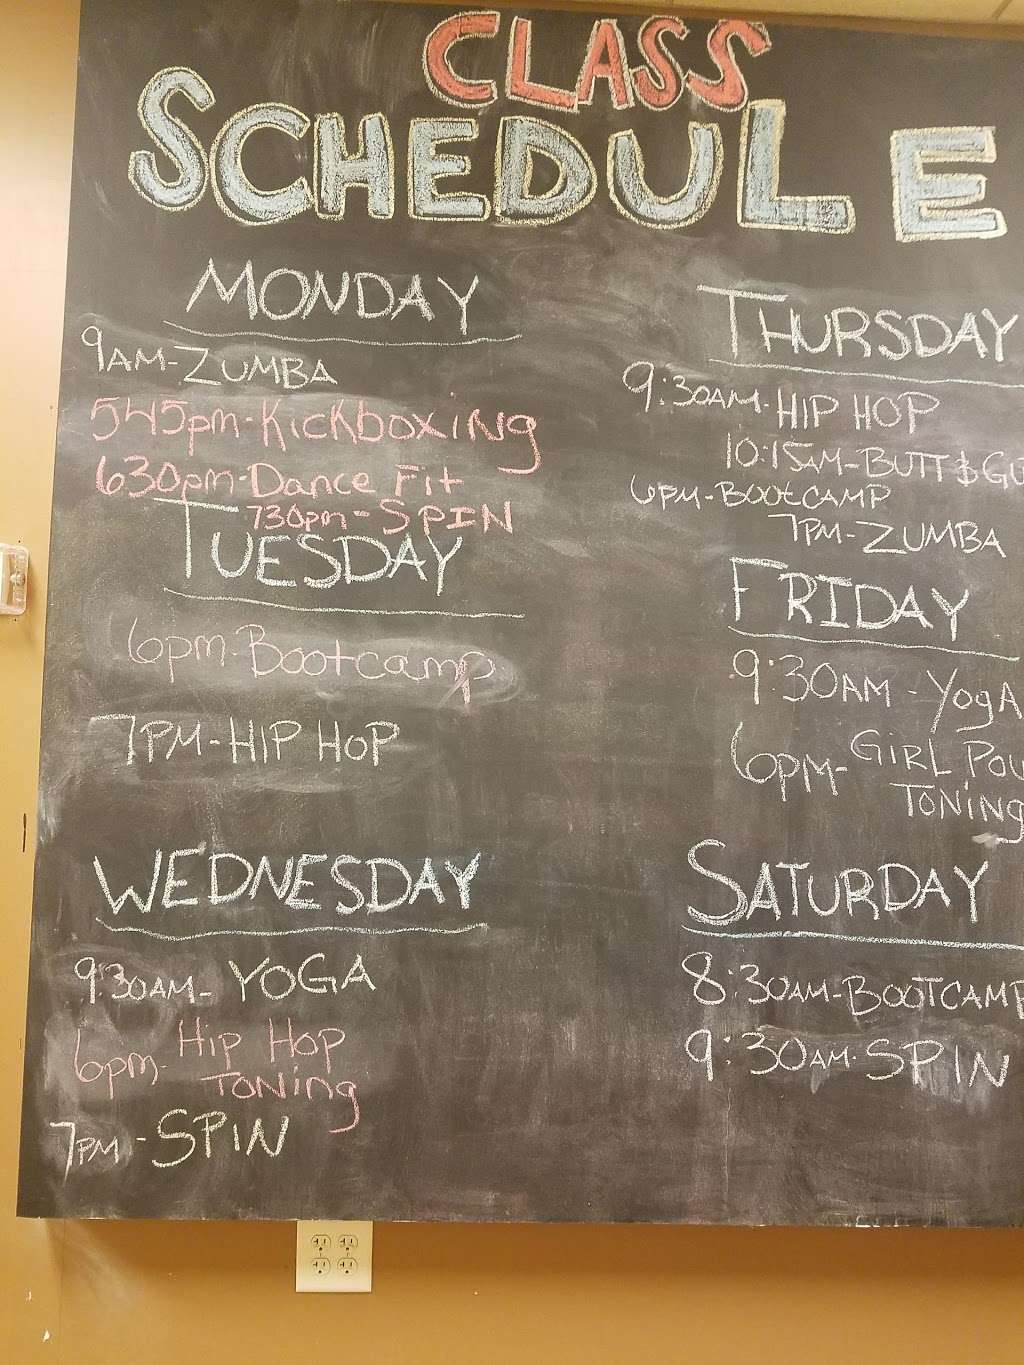 CLASS
SCHEDULE
MONDAY
9AM-ZUMBA
545pm-Kickboxing
630pm-Dance Fit
730pm-SPIN
TUESDAY
6pm-Bootcamp
7PM-HIP HOP
WEDNESDAY
9:30AM-YOGA
6pm-Hip Hop
Toning
7PM-SPIN
THURSDAY
9:30AM-HIP HOP
10:15AM-BUTT &
6PM-BOOTCAMP
7PM-ZUMBA
FRIDAY
9:30AM-YogA
6pm-GiRL
TONing
SATURDAY
8:30AM-BOOTCAMP
9:30AM-SPIN